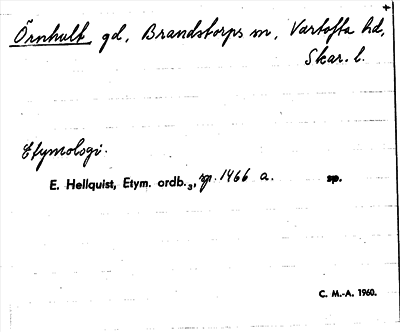 Örnhult gd, Brandstorps sn, Vartofta hd,
Skar. l.
Etymologi.
E. Hellquist, Etym. ordb.₃, sp. 1466 a. sp.
C. M.-A. 1960.